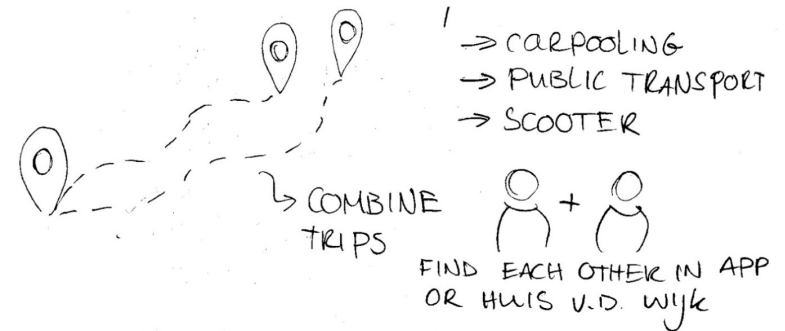 → CARPOOLING
→ PUBLIC TRANSPORT
→ SCOOTER
↳ COMBINE
TRIPS
+
FIND EACH OTHER IN APP
OR HUIS V.D. WIJK